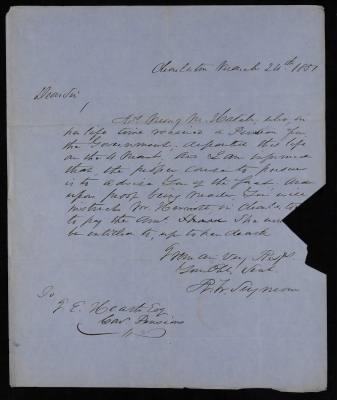 Charleston March 24th 1851
Dear Sir
Mrs M. Hatch, who, in
her life time received a Pension from
the Government, departed this life
on the 4 Inst, and I am informed
that the proper course to pursue
is to advise you of the fact. And
upon proof being made, you will
instruct Mr in Charleston
to pay the Amt. She may
be entitled to, up to her death
I remain very Resp
Your Obt. Servt
Seymour
To
J. E. Heath Esq
Com Pensions